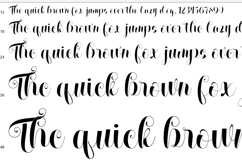 12 The quick brown fox jumps over the lazy dog. 1234567890
18 The quick brown fox jumps over the lazy d
24 The quick brown fox jumps over
36 The quick brown fox
48 The quick brown